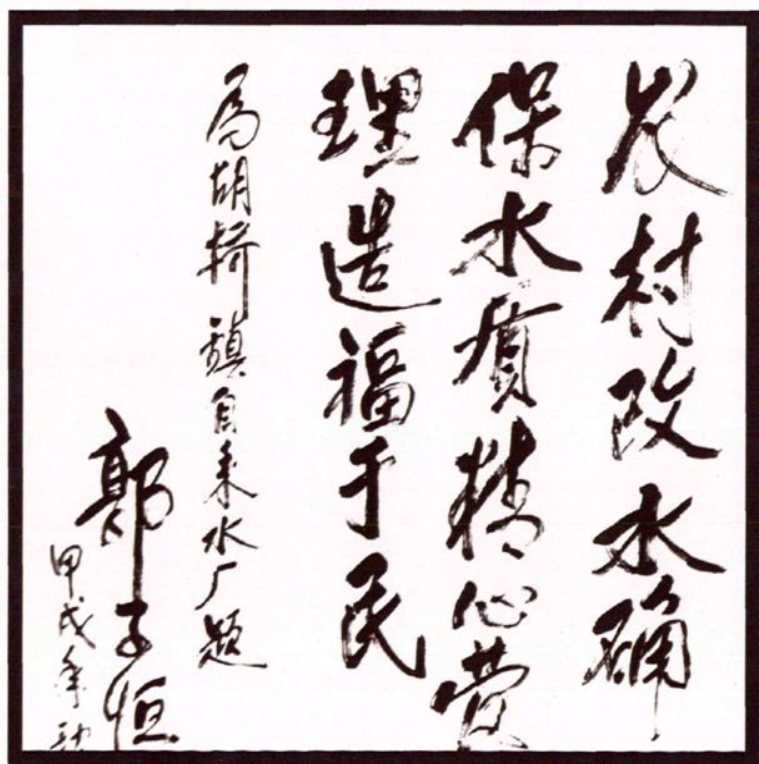 农村改水确
保水质精心管
理造福于民
为胡桥镇自来水厂题
郭子恒
甲戌年